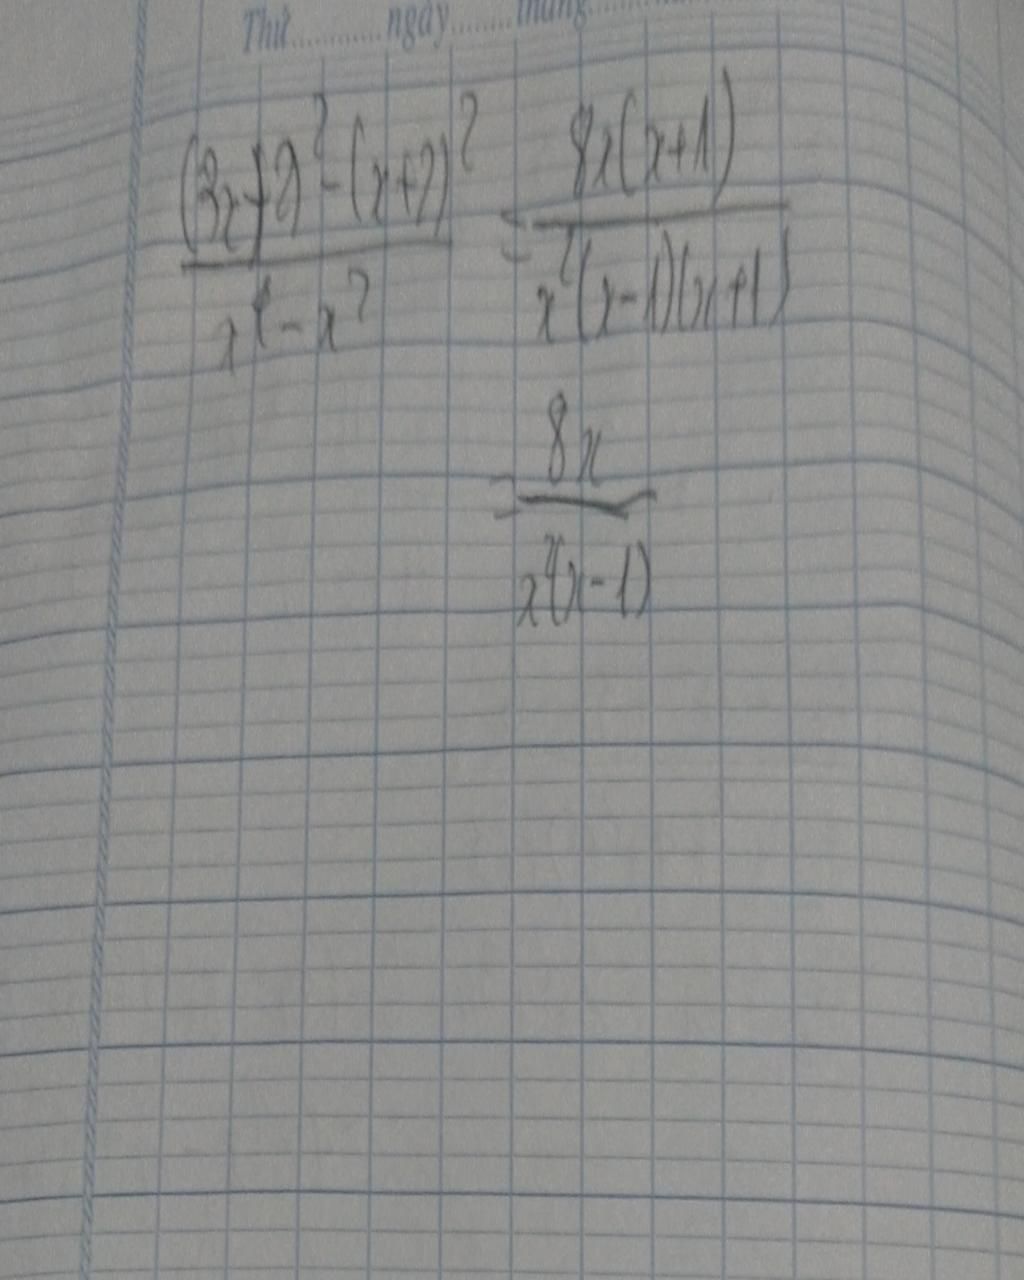 Thứ ........... ngày ....... tháng ..........
((3x+2)² - (x+2)²)/(x⁴ - x²) = 8x(x+1)/(x²(x-1)(x+1))
= 8x/(x²(x-1))